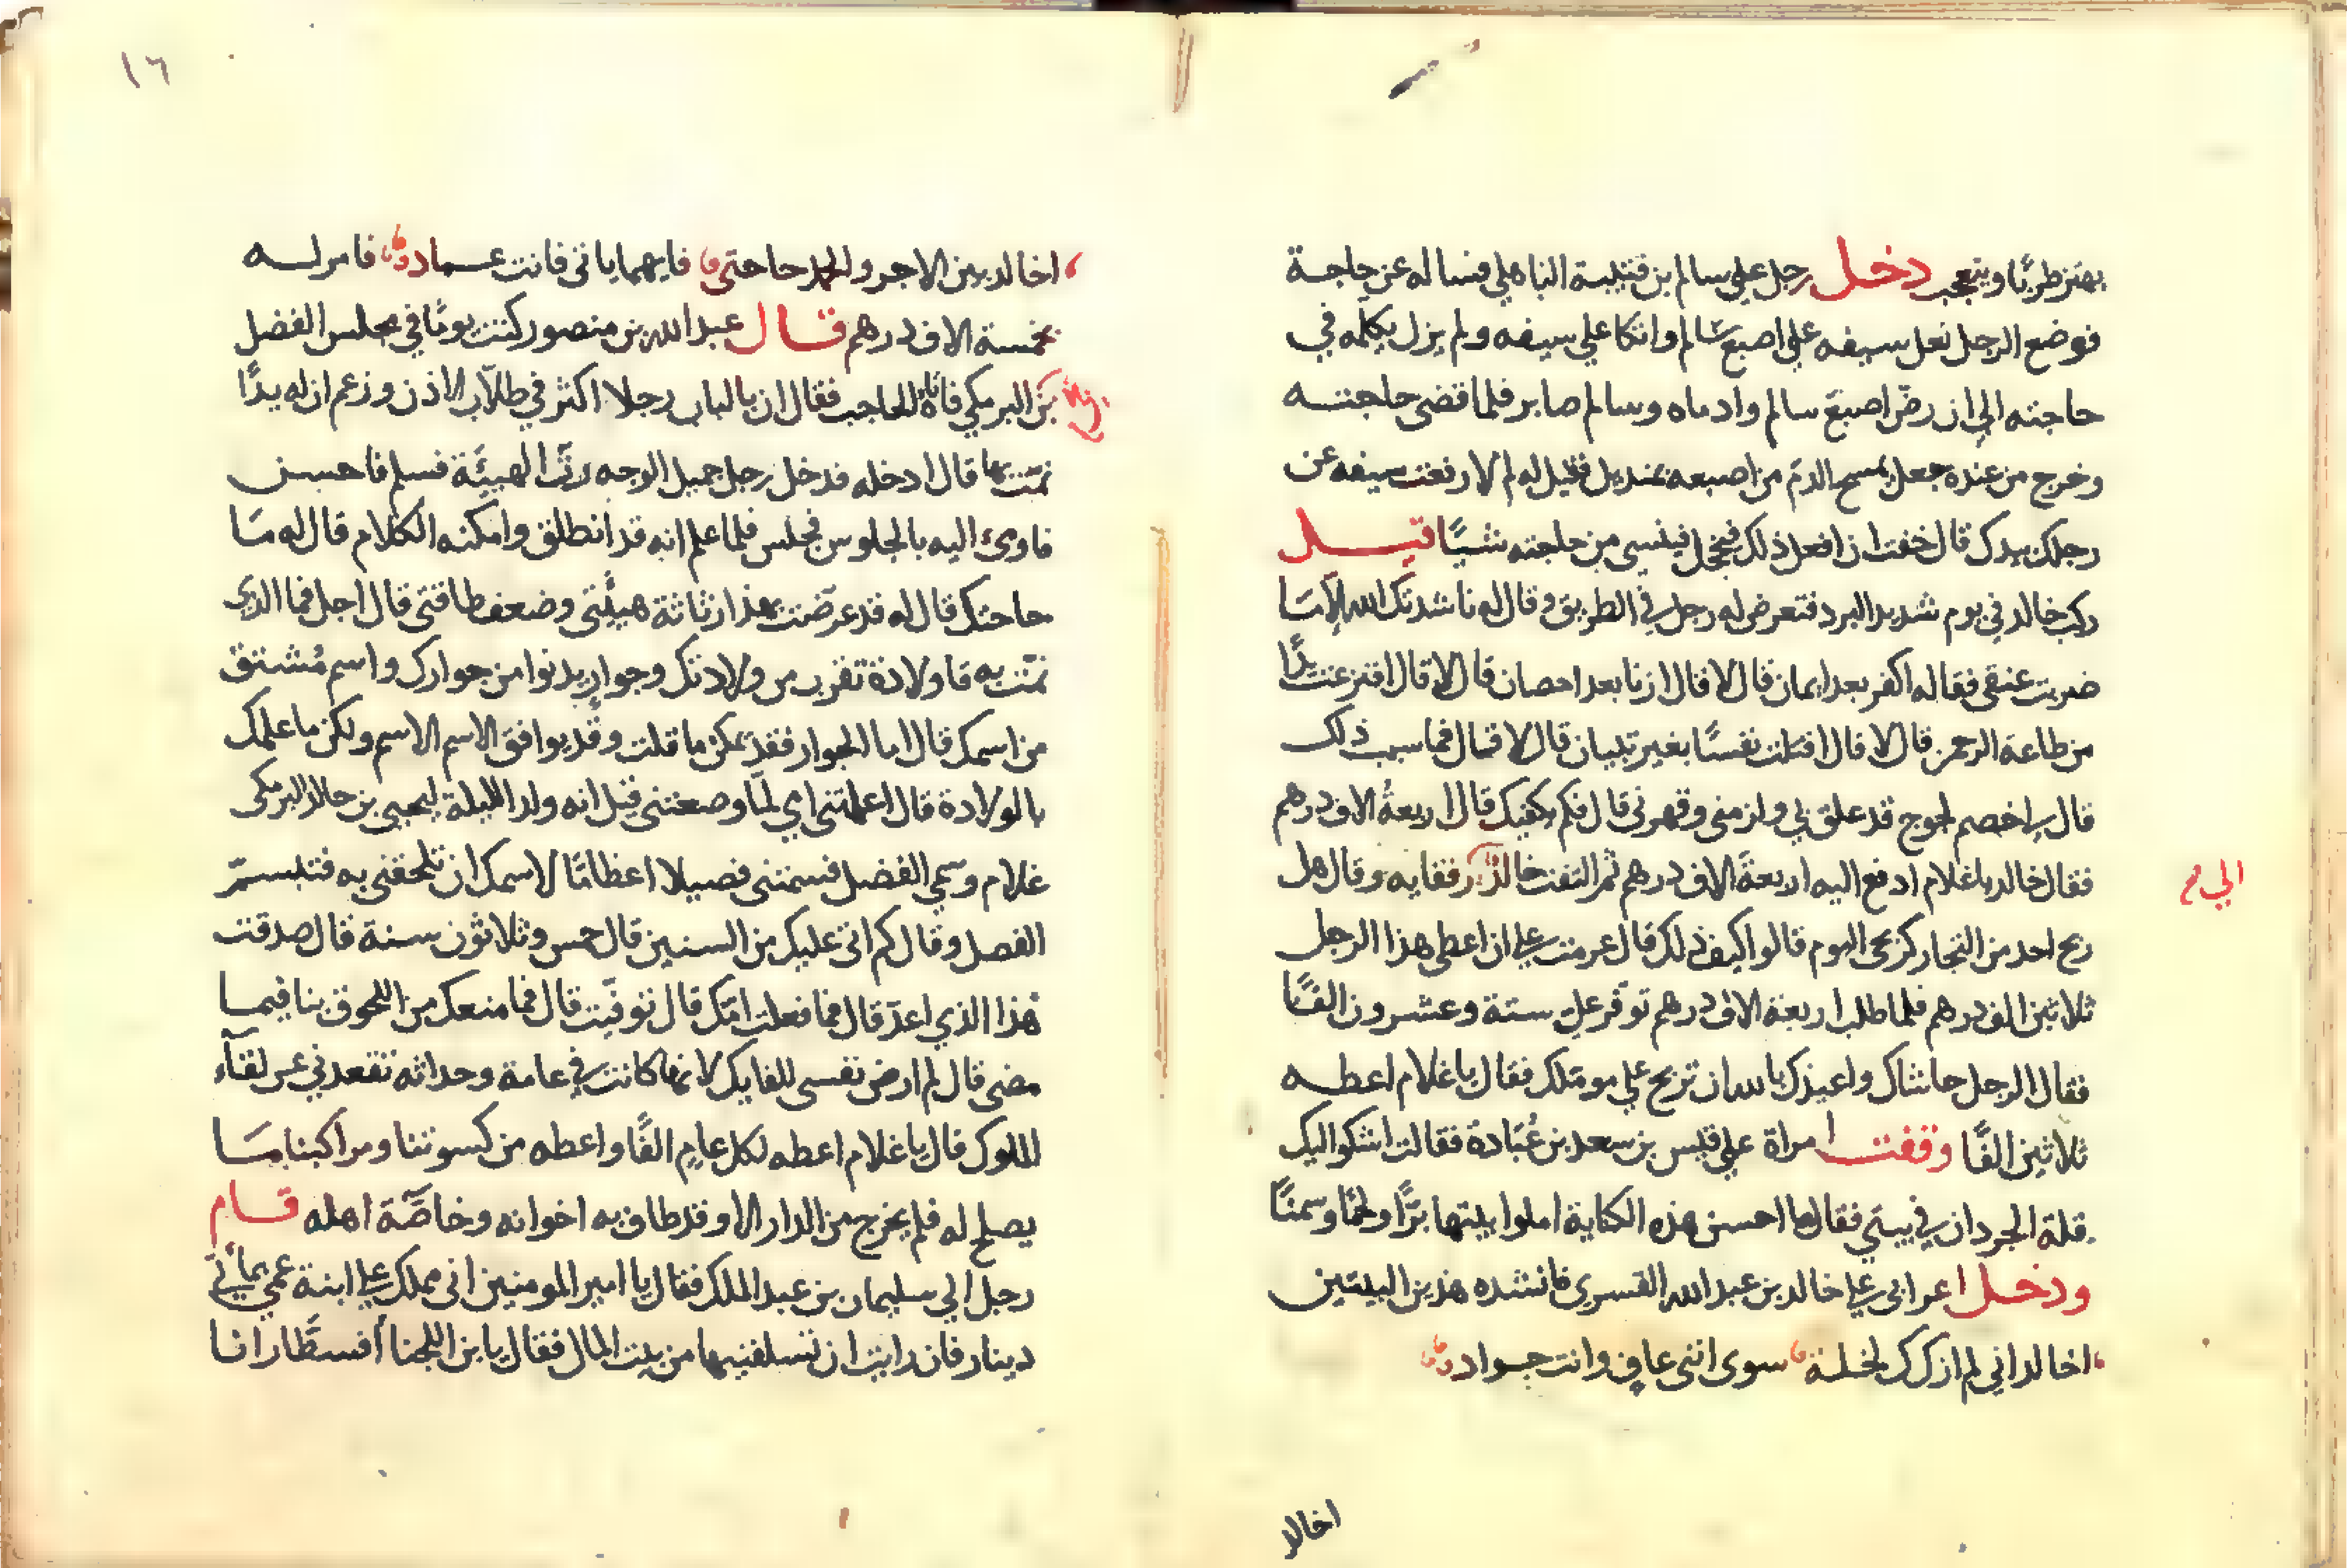 يهتز طربًا ويتعجب دخل رجل على سالم بن قتيبة الباهلي فساله عن حاجة
فوضع الرجل نعل سيفه على اصبع سالم واتكا على سيفه ولم يزل يكلمه في
حاجته الى ان رضّ اصبع سالم وادماه وسالم صابر فلما قضى حاجتــه
وخرج من عنده جعل يمسح الدم من اصبعه بمنديل فقيل له لم لا رفعت سيفه عن
رجلك بيدك قال خفت ان افعل ذلك فيخجل فينسى من حاجته شيًا قيــل
ركب خالد في يوم شديد البرد فتعرض له رجل في الطريق وقال له ناشدتك الله الا ما
ضربت عنقي فقاله اكفر بعد ايمان قال لا قال ازنا بعد احصان قال لا قال افنزعت يدًا
من طاعة الرحمن قال لا قال اقتلت نفسًا بغير تبيان قال لا قال فما سبب ذلك
قال لي خصم لجوج قد علق بي ولزمني وقهرني قال فكم يكفيك قال اربعة الاف درهم
فقال خالد ياغلام ادفع اليه اربعة الاف درهم ثم التفت خالد رفقايه وقال هل
الي م
ربح احد من التجار كربحى اليوم قالوا كيف ذلك قال عزمت على ان اعطى هذا الرجل
ثلاثين الف درهم فلما طلب اربعة الاف درهم توفر علي ستة وعشرون الفًا
فقال الرجل حاشاك واعيذك بالله ان تربح على مومتلك فقال ياغلام اعطــه
ثلاثين الفًا وقفت امراة على قيس بن سعد بن عُبَادة فقالت اشكو اليك
قلة الجردان في بيتي فقال ما احسن هذه الكناية املوا بيتها برًّا ولحمًا وسمنًا
ودخل اعرابى على خالد بن عبد الله القسري فانشده هذين البيتين
اخالد اني لم ازرك لخلة سوى انني عاف وانت جواد
اخالد
١٦
اخالد بين الاجر والحمد حاجتي فايهما ياتى فانت عماد فامر لــه
بخمسة الاف درهم قــال عبد الله بن منصور كنت يومًا في مجلس الفضل
بن البرمكي فاتاه الحاجب فقال ان بالباب رجلا اكثر في طلاب الاذن وزعم ان له يدًا
يمتّ بها قال ادخله فدخل رجل جميل الوجه رثّ الهيئة فسلم فاحسن
فاوئ اليه بالجلوس فجلس فلما علم انه قد انطلق وامكنه الكلام قال له ما
حاجتك قال له قد عرّضت بهذا رثاثة هيئتى وضعف طاقتى قال اجل فما الذي
تمتّ به قا ولادة تقرب من ولادتك وجوار يدنوا من جوارك واسم مُشتق
من اسمك قال اما الجوار فقد يمكن ما قلت وقد يوافق الاسم الاسم ولكن ما علمك
بالولادة قال اعلمتنى امي لمّا وضعتنى قيل انه ولد الليلة ليحيى بن خالد البرمكى
غلام وسمي الفضل فسمتنى فصيلا اعظامًا لاسمك ان تلحقنى به فتبسمّ
الفصل وقال كم اتى عليك من السنين قال خمس وثلاثون سنة قال صدقت
هذا الذي اعدّ قال فما فعلت امّك قال توفيّت قال فما منعك من اللحوق بنا فيما
مضى قال لم ارض نفسى للقايك لانها كانت في عامة وحداثه تقعدني عن لقآء
الملوك قال ياغلام اعطه لكل عامٍ الفًا واعطه من كسوتنا ومراكبنا ما
يصلح له فلم يخرج من الدار الا وقد طاف به اخوانه وخاصّة اهله قــام
رجل الي سليمان بن عبد الملك فقال يا امير المومنين انى مملك على ابنة عمي بمأتي
دينار فان رايت ان تسلفنيها من بيت المال فقال يا بن اللخنا أفسطّار انا